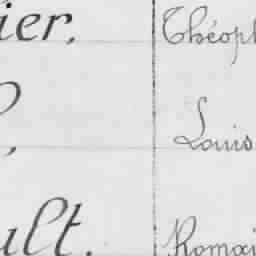 ier. Théoph
, Louis
ult. Romai